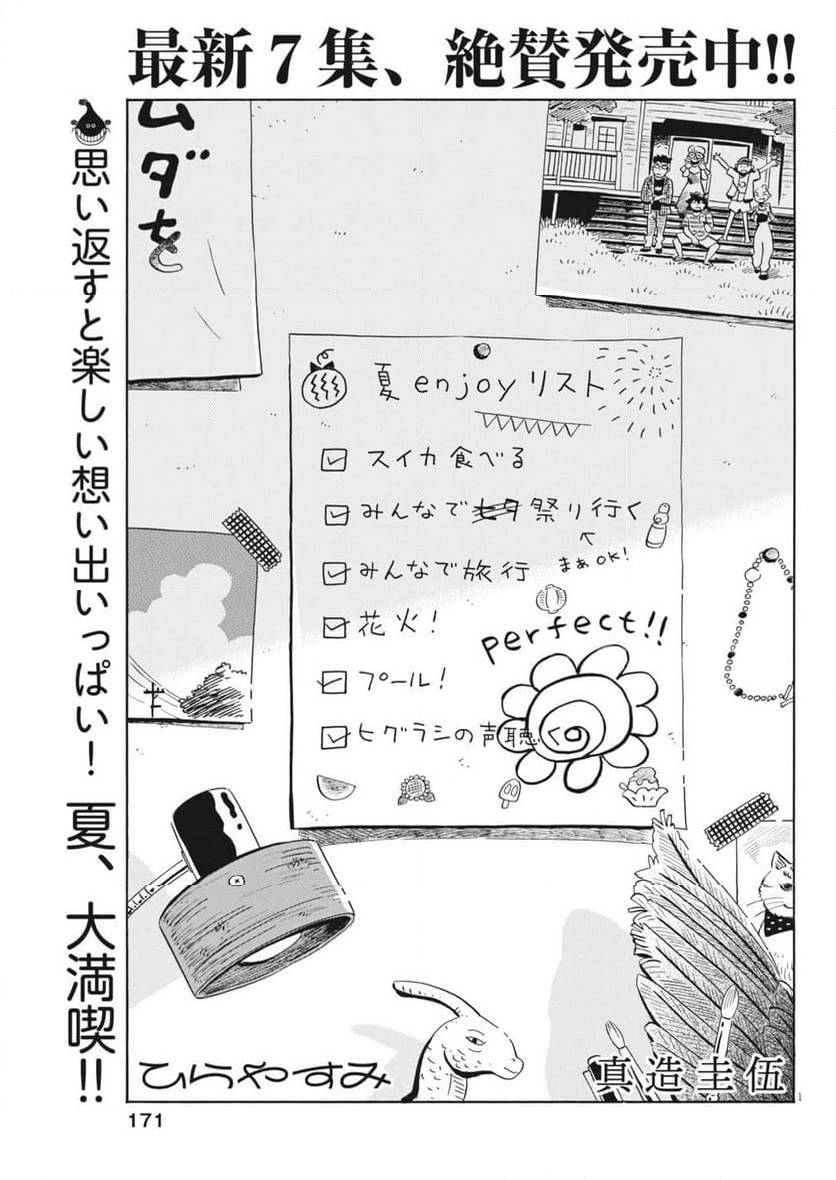 最新7集、絶賛発売中!!
思い返すと楽しい想い出いっぱい!夏、大満喫!!
ムダを
夏enjoyリスト
スイカ食べる
みんなで七夕祭り行く
まぁOK!
みんなで旅行
花火!
プール!
ヒグラシの声聴く
perfect!!
ひらやすみ
真造圭伍
1
171